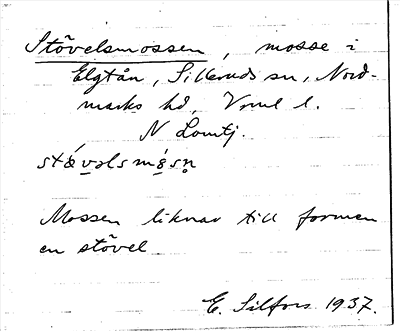 Stövelsmossen, mosse i
Elgtån, Silleruds sn, Nord-
marks hd, Vrml l.
N Lomtj.
Mossen liknar till formen
en stövel
E. Silfors 1937.